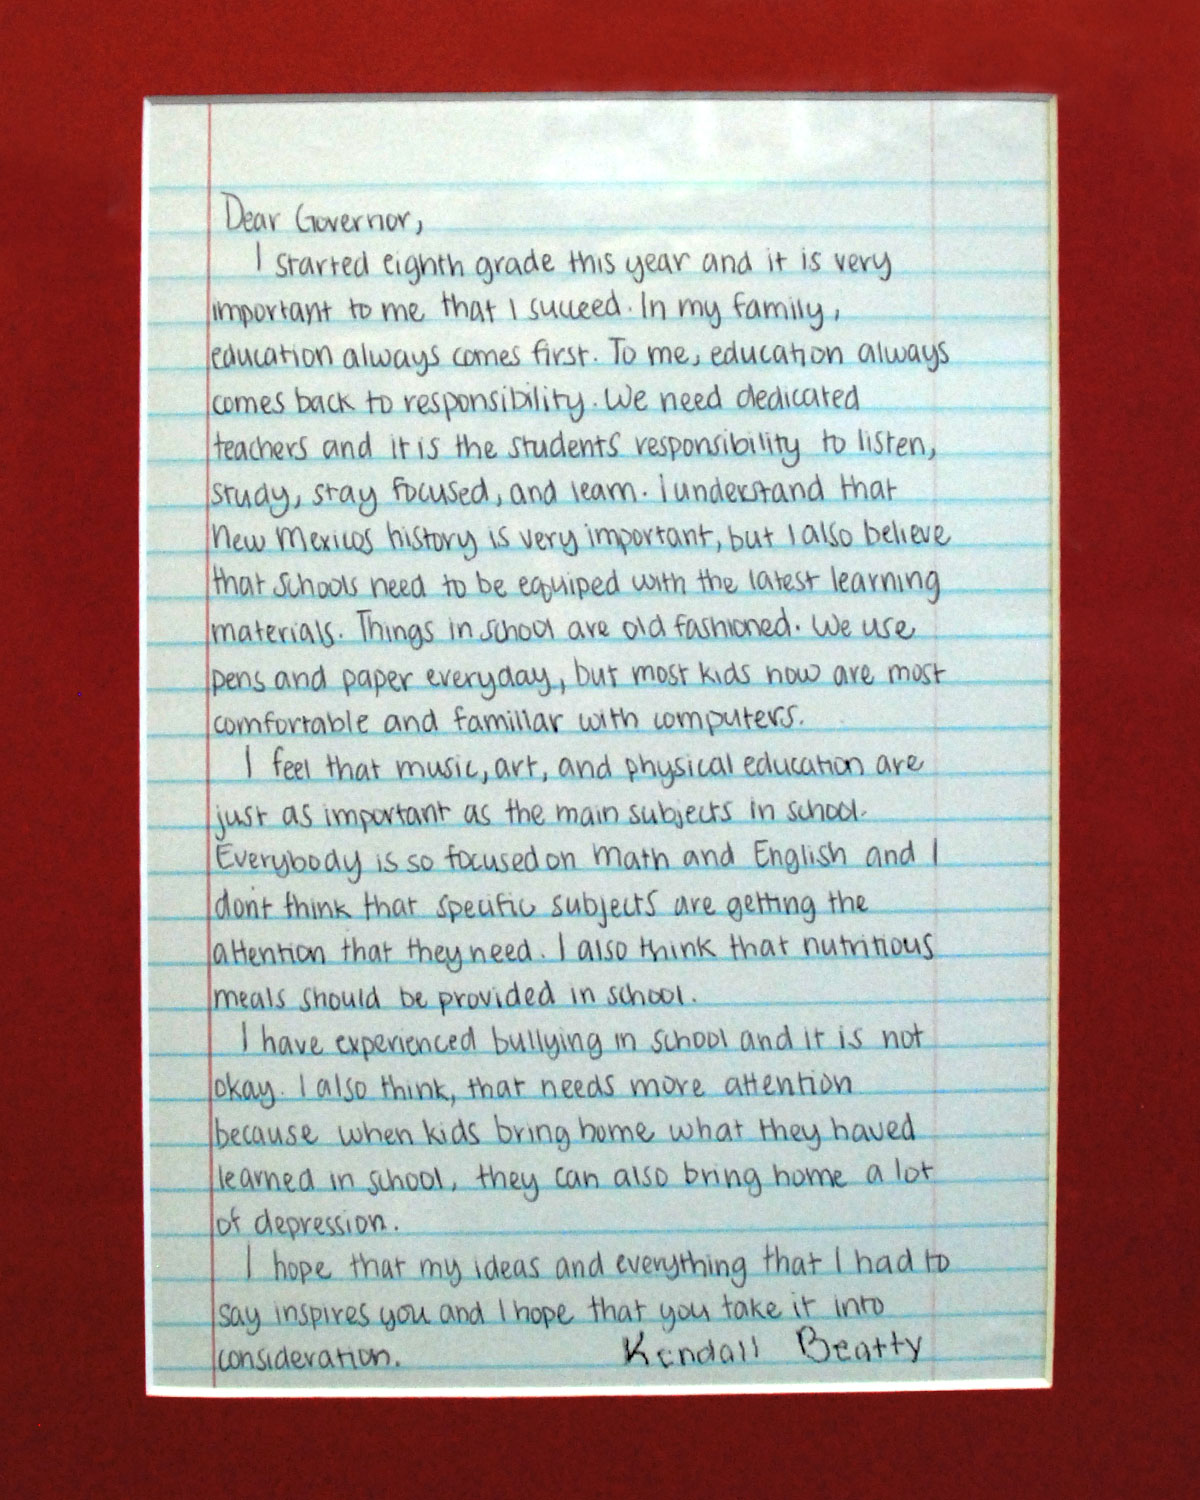 Dear Governor,
I started eighth grade this year and it is very
important to me that I succeed. In my family,
education always comes first. To me, education always
comes back to responsibility. We need dedicated
teachers and it is the students responsibility to listen,
study, stay focused, and learn. I understand that
New Mexicos history is very important, but I also believe
that schools need to be equiped with the latest learning
materials. Things in school are old fashioned. We use
pens and paper everyday, but most kids now are most
comfortable and famillar with computers.
I feel that music, art, and physical education are
just as important as the main subjects in school.
Everybody is so focused on Math and English and I
don't think that specific subjects are getting the
attention that they need. I also think that nutritious
meals should be provided in school.
I have experienced bullying in school and it is not
okay. I also think, that needs more attention
because when kids bring home what they haved
learned in school, they can also bring home a lot
of depression.
I hope that my ideas and everything that I had to
say inspires you and I hope that you take it into
consideration. Kendall Beatty